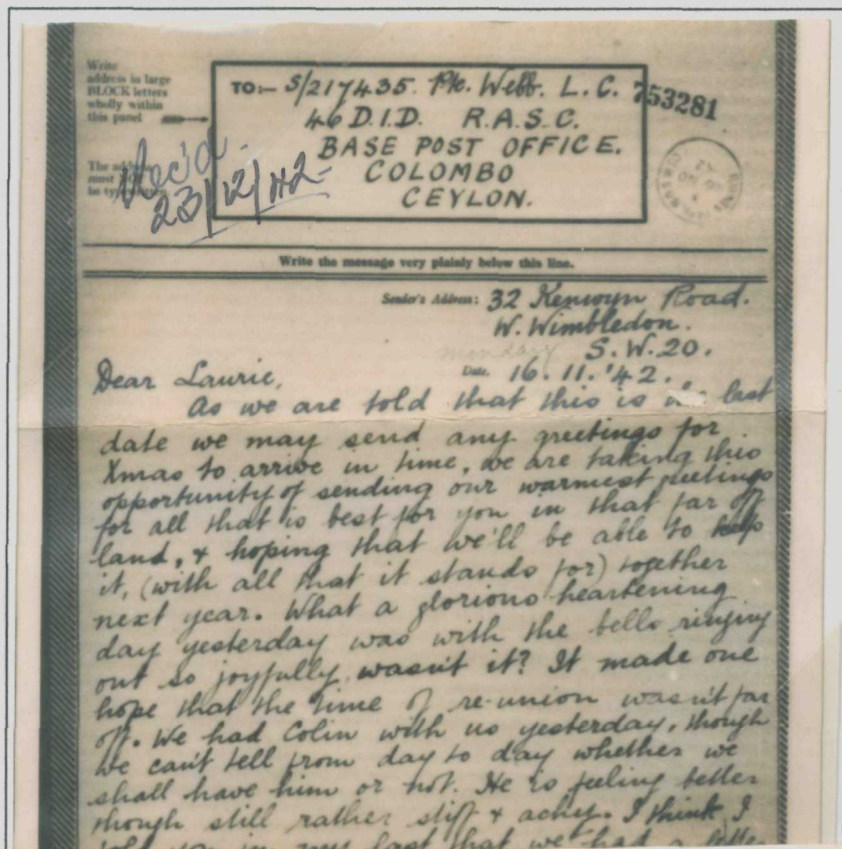 Write
address in large
BLOCK letters
wholly within
this panel
TO:— S/217435. Pte. Webb. L. C.
753281
46 D.I.D. R.A.S.C.
BASE POST OFFICE.
COLOMBO
CEYLON.
The
must
be
Rec'd.
23/12/42
Write the message very plainly below this line.
Sender's Address: 32 Kenwyn Road.
W. Wimbledon.
monday S.W.20.
Date. 16.11.'42.
Dear Laurie,
As we are told that this is the last
date we may send any greetings for
Xmas to arrive in time, we are taking this
opportunity of sending our warmest greetings
for all that is best for you in that far off
land, & hoping that we'll be able to keep
it, (with all that it stands for) together
next year. What a glorious heartening
day yesterday was with the bells ringing
out so joyfully wasn't it? It made one
hope that the time of re-union wasn't far
off. We had Colin with us yesterday, though
we can't tell from day to day whether we
shall have him or not. He is feeling better
though still rather stiff & achy. I think I
told you in my last that we had a letter